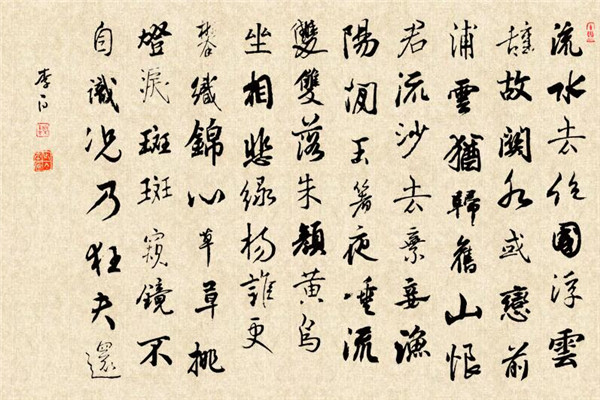 流水去絶國浮雲
辭故關水或戀前
浦雲猶歸舊山恨
君流沙去棄妾漁
陽間玉箸夜垂流
雙雙落朱顏黄鳥
坐相悲緑楊誰更
攀織錦心草草挑
燈淚斑斑窺鏡不
自識况乃狂夫還
李白